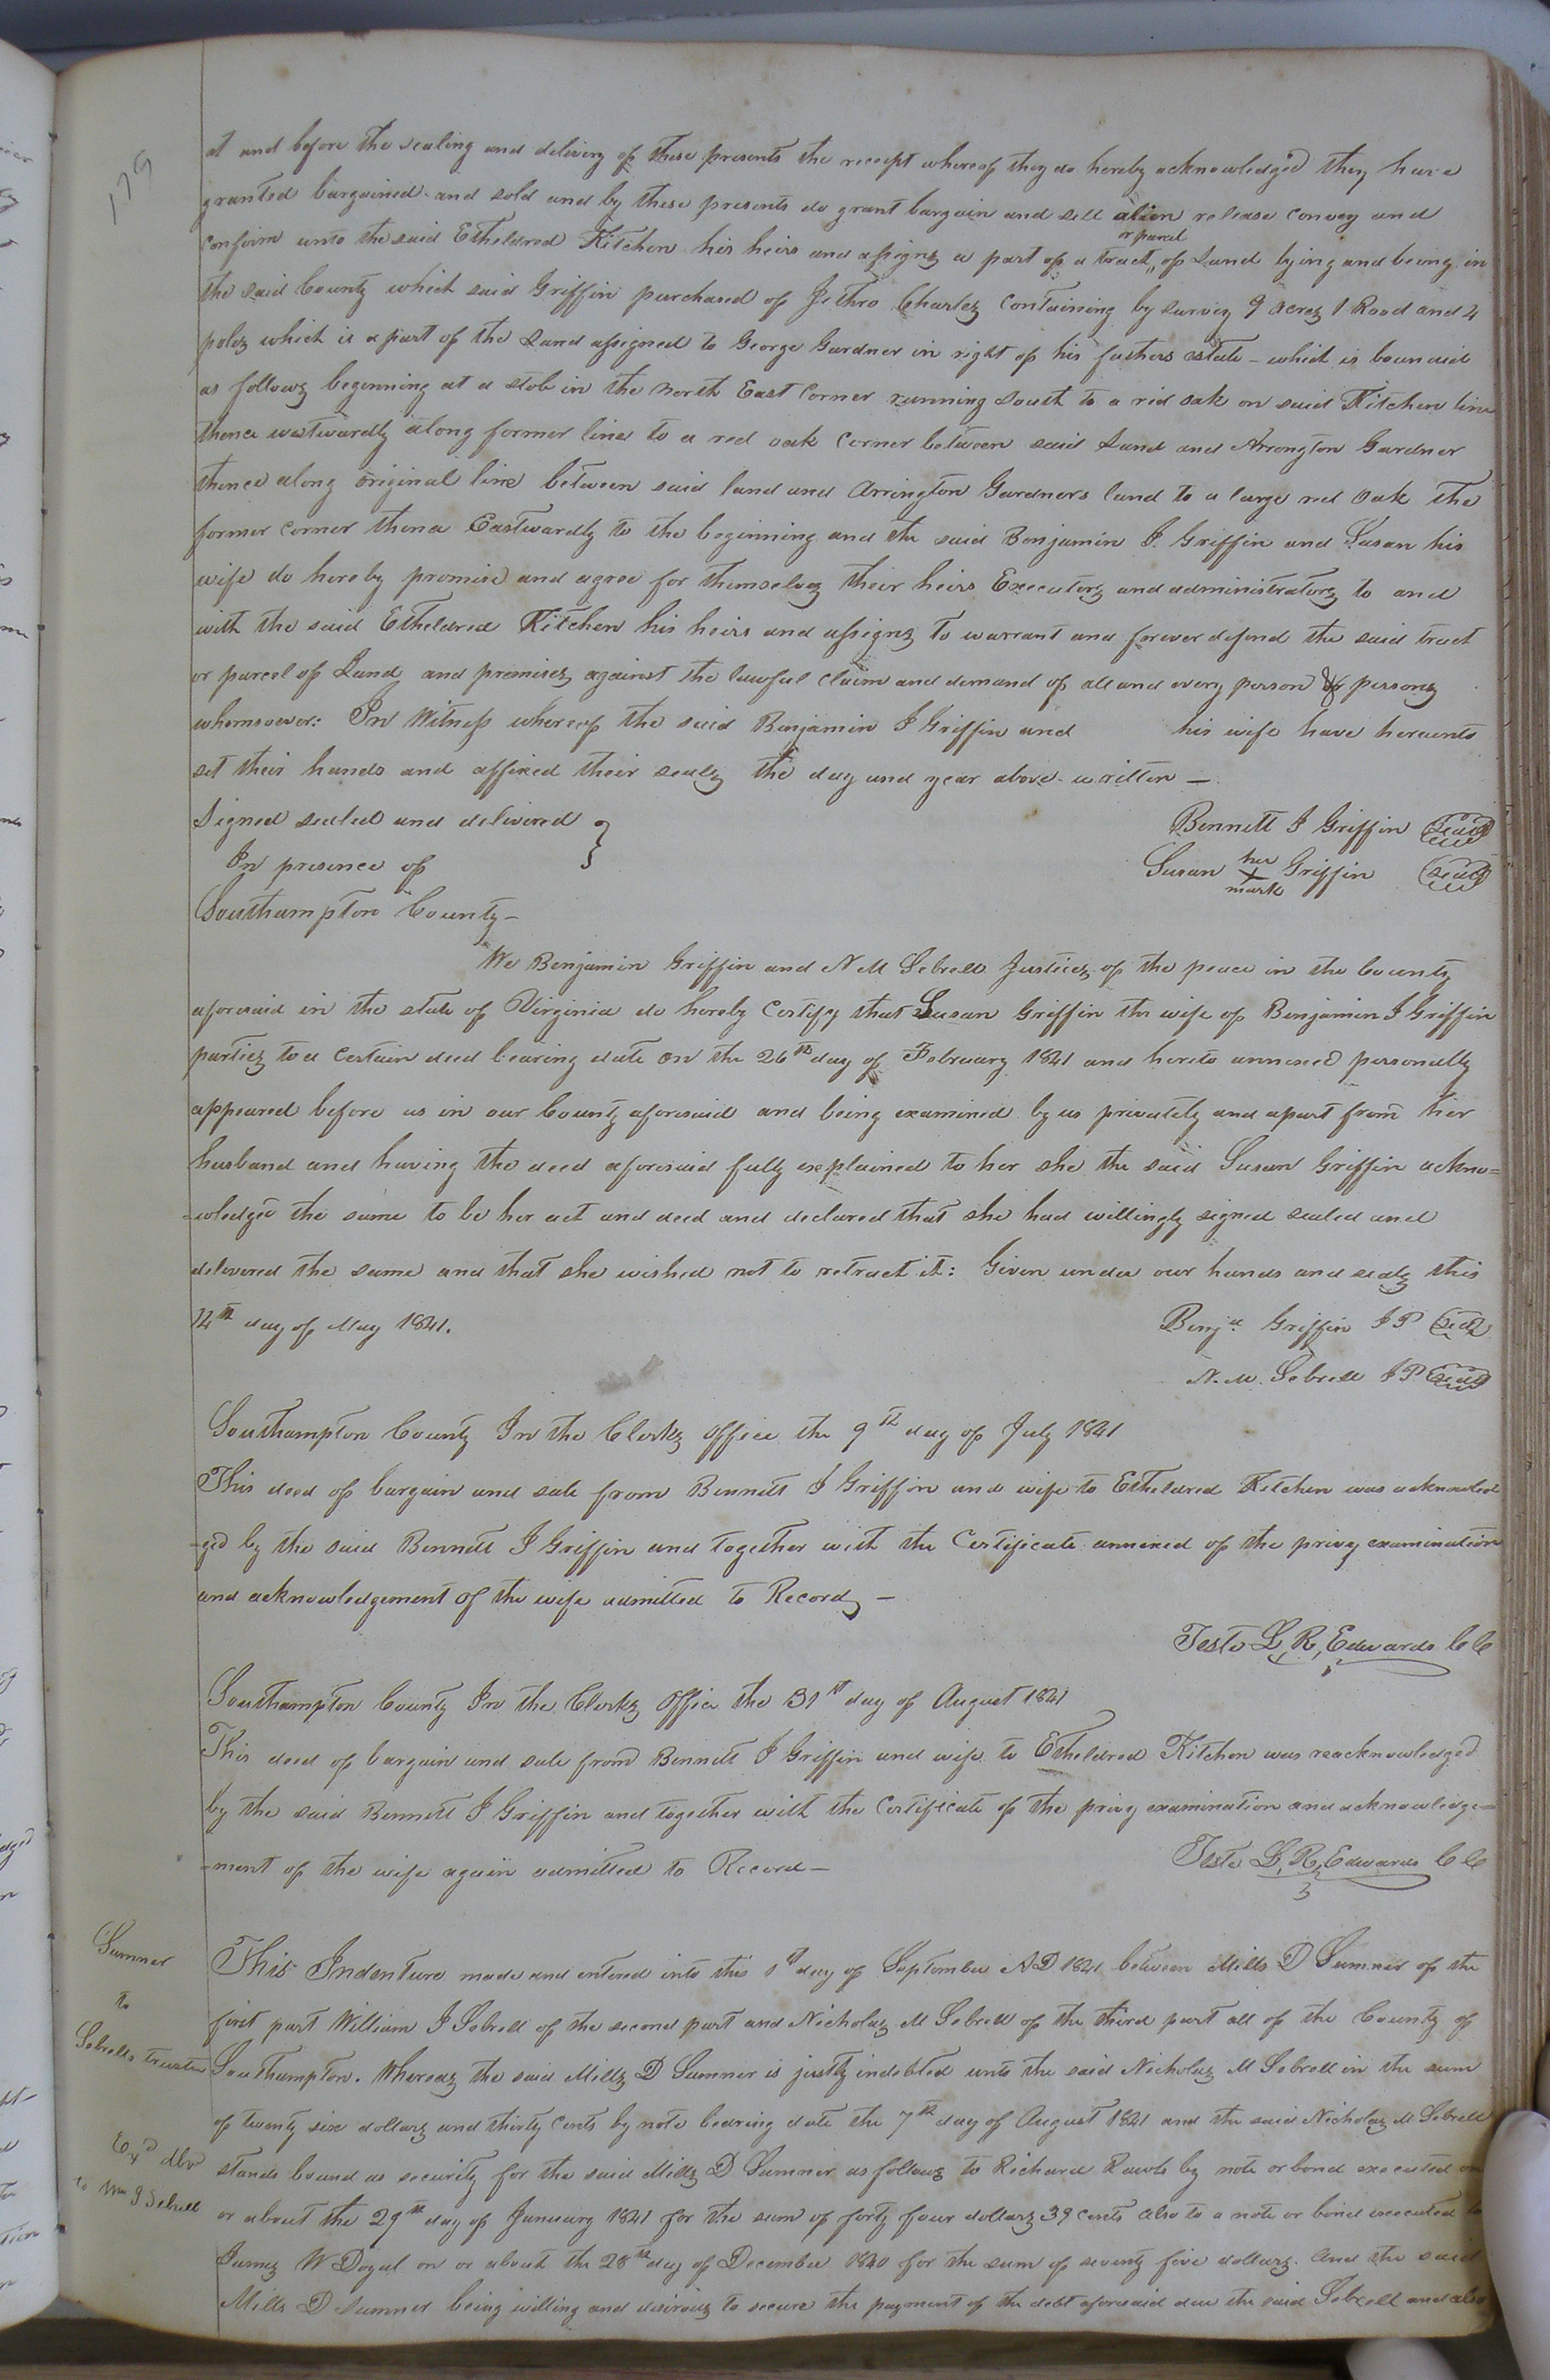 179
at and before the sealing and delivery of these presents the receipt whereof they do hereby acknowledged they have
granted bargained and sold and by these presents do grant bargain and sell alien release convey and
confirm unto the said Etheldred Kitchen his heirs and assigns a part of a tract or parcel of Land lying and being in
the said County which said Griffin purchased of Jethro Charles containing by survey 9 acres 1 Rood and 4
poles which is a part of the Land assigned to George Gardner in right of his fathers estate - which is bounded
as follows beginning at a stob in the North East Corner running South to a red oak on said Kitchen line
thence westwardly along former line to a red oak corner between said Land and Arrongton Gardner
thence along original line between said land and Arrington Gardners land to a large red oak the
former corner thence Eastwardly to the beginning and the said Benjamin J. Griffin and Susan his
wife do hereby promise and agree for themselves their heirs Executors and administrators to and
with the said Etheldred Kitchen his heirs and assigns to warrant and forever defend the said tract
or parcel of Land and premises against the lawful claim and demand of all and every person or persons
whomsoever: In Witness whereof the said Benjamin J Griffin and his wife have hereunto
set their hands and affixed their seals the day and year above written -
Signed sealed and delivered }
In presence of
Bennett J Griffin (seal)
Susan her X mark Griffin (seal)
Southampton County -
We Benjamin Griffin and N M Sebrell Justices of the peace in the County
aforesaid in the state of Virginia do hereby Certify that Susan Griffin the wife of Benjamin J Griffin
parties to a certain deed bearing date on the 26th day of February 1841 and hereto annexed personally
appeared before us in our County aforesaid and being examined by us privately and apart from her
husband and having the deed aforesaid fully explained to her she the said Susan Griffin ackno=
=wledged the same to be her act and deed and declared that she had willingly signed sealed and
delivered the same and that she wished not to retract it: Given under our hands and seals this
14th day of May 1841.
Benja Griffin JP (seal)
N. M. Sebrell JP (seal)
Southampton County In the Clerks office the 9th day of July 1841
This deed of bargain and sale from Bennett J Griffin and wife to Etheldred Kitchen was acknowled
-ged by the said Bennett J Griffin and together with the Certificate annexed of the privy examination
and acknowledgement of the wife admitted to Record -
Teste L, R, Edwards CC
Southampton County In the Clerks office the 31st day of August 1841
This deed of bargain and sale from Bennett J Griffin and wife to Etheldred Kitchen was reacknowledged
by the said Bennett J Griffin and together with the Certificate of the privy examination and acknowledge=
-ment of the wife again admitted to Record -
Teste L, R, Edwards CC
Sumner
to
Sebrells trustee
Exd
to Wm J Sebrell
This Indenture made and entered into this 1st day of September A D 1841 between Mills D Sumner of the
first part William J Sebrell of the second part and Nicholas M Sebrell of the third part all of the County of
Southampton. Whereas the said Mills D Sumner is justly indebted unto the said Nicholas M Sebrell in the sum
of twenty six dollars and thirty cents by note bearing date the 7th day of August 1841 and the said Nicholas M Sebrell
stands bound as security for the said Mills D Sumner as follows to Richard Rawls by note or bond executed on
or about the 29th day of January 1841 for the sum of forty four dollars 39 cents also to a note or bond executed to
James W Doyal on or about the 28th day of December 1840 for the sum of seventy five dollars. And the said
Mills D Sumner being willing and desirous to secure the payment of the debt aforesaid due the said Sebrell and also